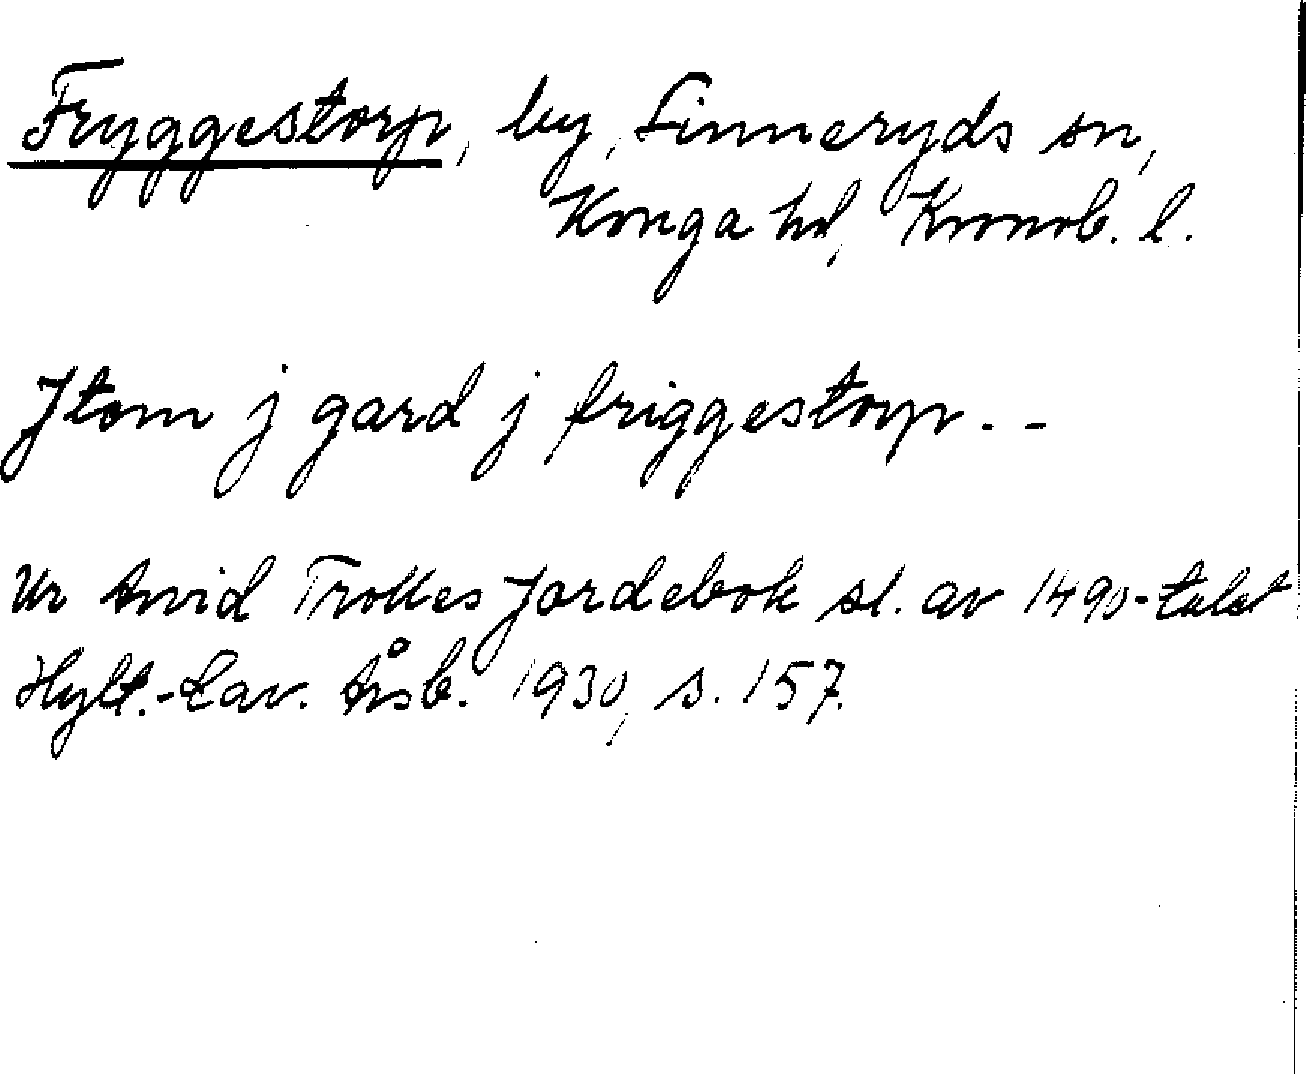 Fryggestorp, by, Linneryds sn,
Konga hd, Kronob. l.
Jtem j gard j friggestorp. -
Ur Arvid Trolles Jordebok sl. av 1490-talet
Hylt.-Cav. Årsb. 1930, s. 157.